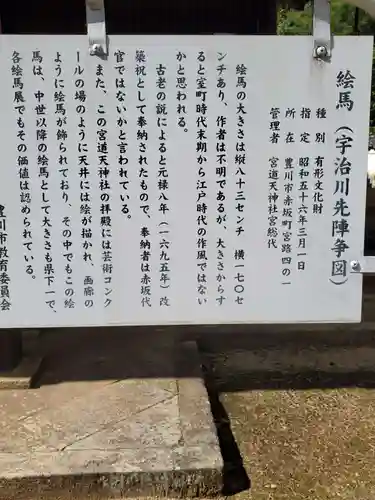 絵馬(宇治川先陣争図)
種別 有形文化財
指定 昭和五十六年三月一日
所在 豊川市赤坂町宮路四の一
管理者 宮道天神社宮総代
絵馬の大きさは縦八十三センチ 横一七〇セ
ンチあり、作者は不明であるが、大きさからす
ると室町時代末期から江戸時代の作風ではない
かと思われる。
古老の説によると元禄八年(一六九五年)改
築祝として奉納されたもので、奉納者は赤坂代
官ではないかと言われている。
また、この宮道天神社の拝殿には芸術コンク
ールの場のように天井には絵が描かれ、画廊の
ように絵馬が飾られており、その中でもこの絵
馬は、中世以降の絵馬として大きさも県下一で、
各絵馬展でもその価値は認められている。
豊川市教育委員会